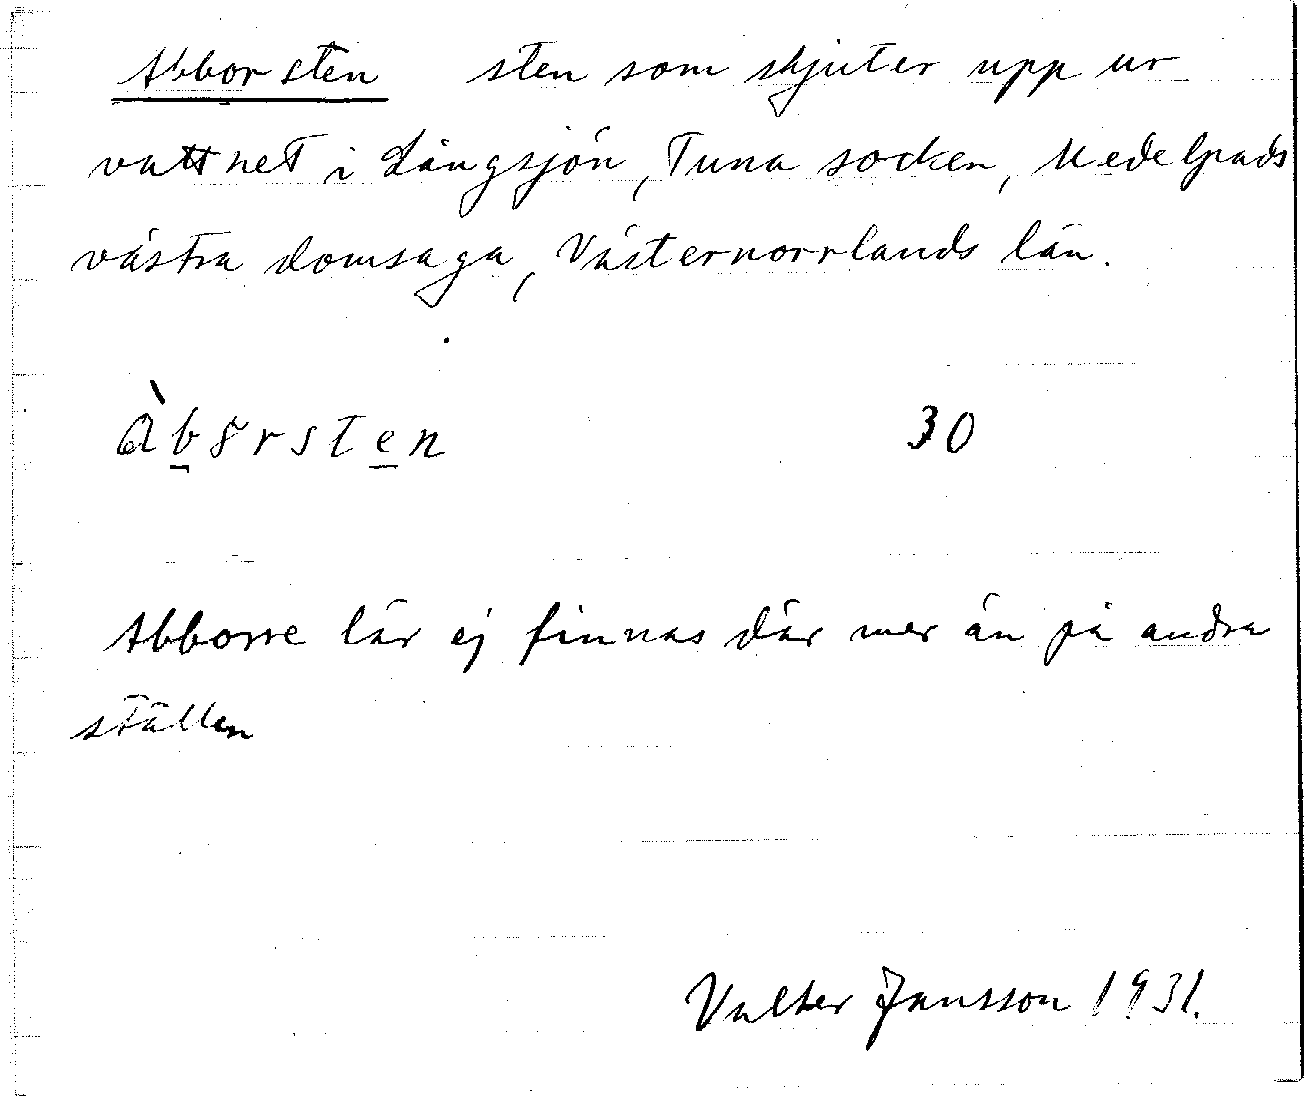 Abborsten sten som skjuter upp ur
vattnet i Långsjön, Tuna socken, Medelpads
västra domsaga, Västernorrlands län.
àbȣrsten 30
Abborre lär ej finnas där mer än på andra
ställen
Valter Jansson 1931.